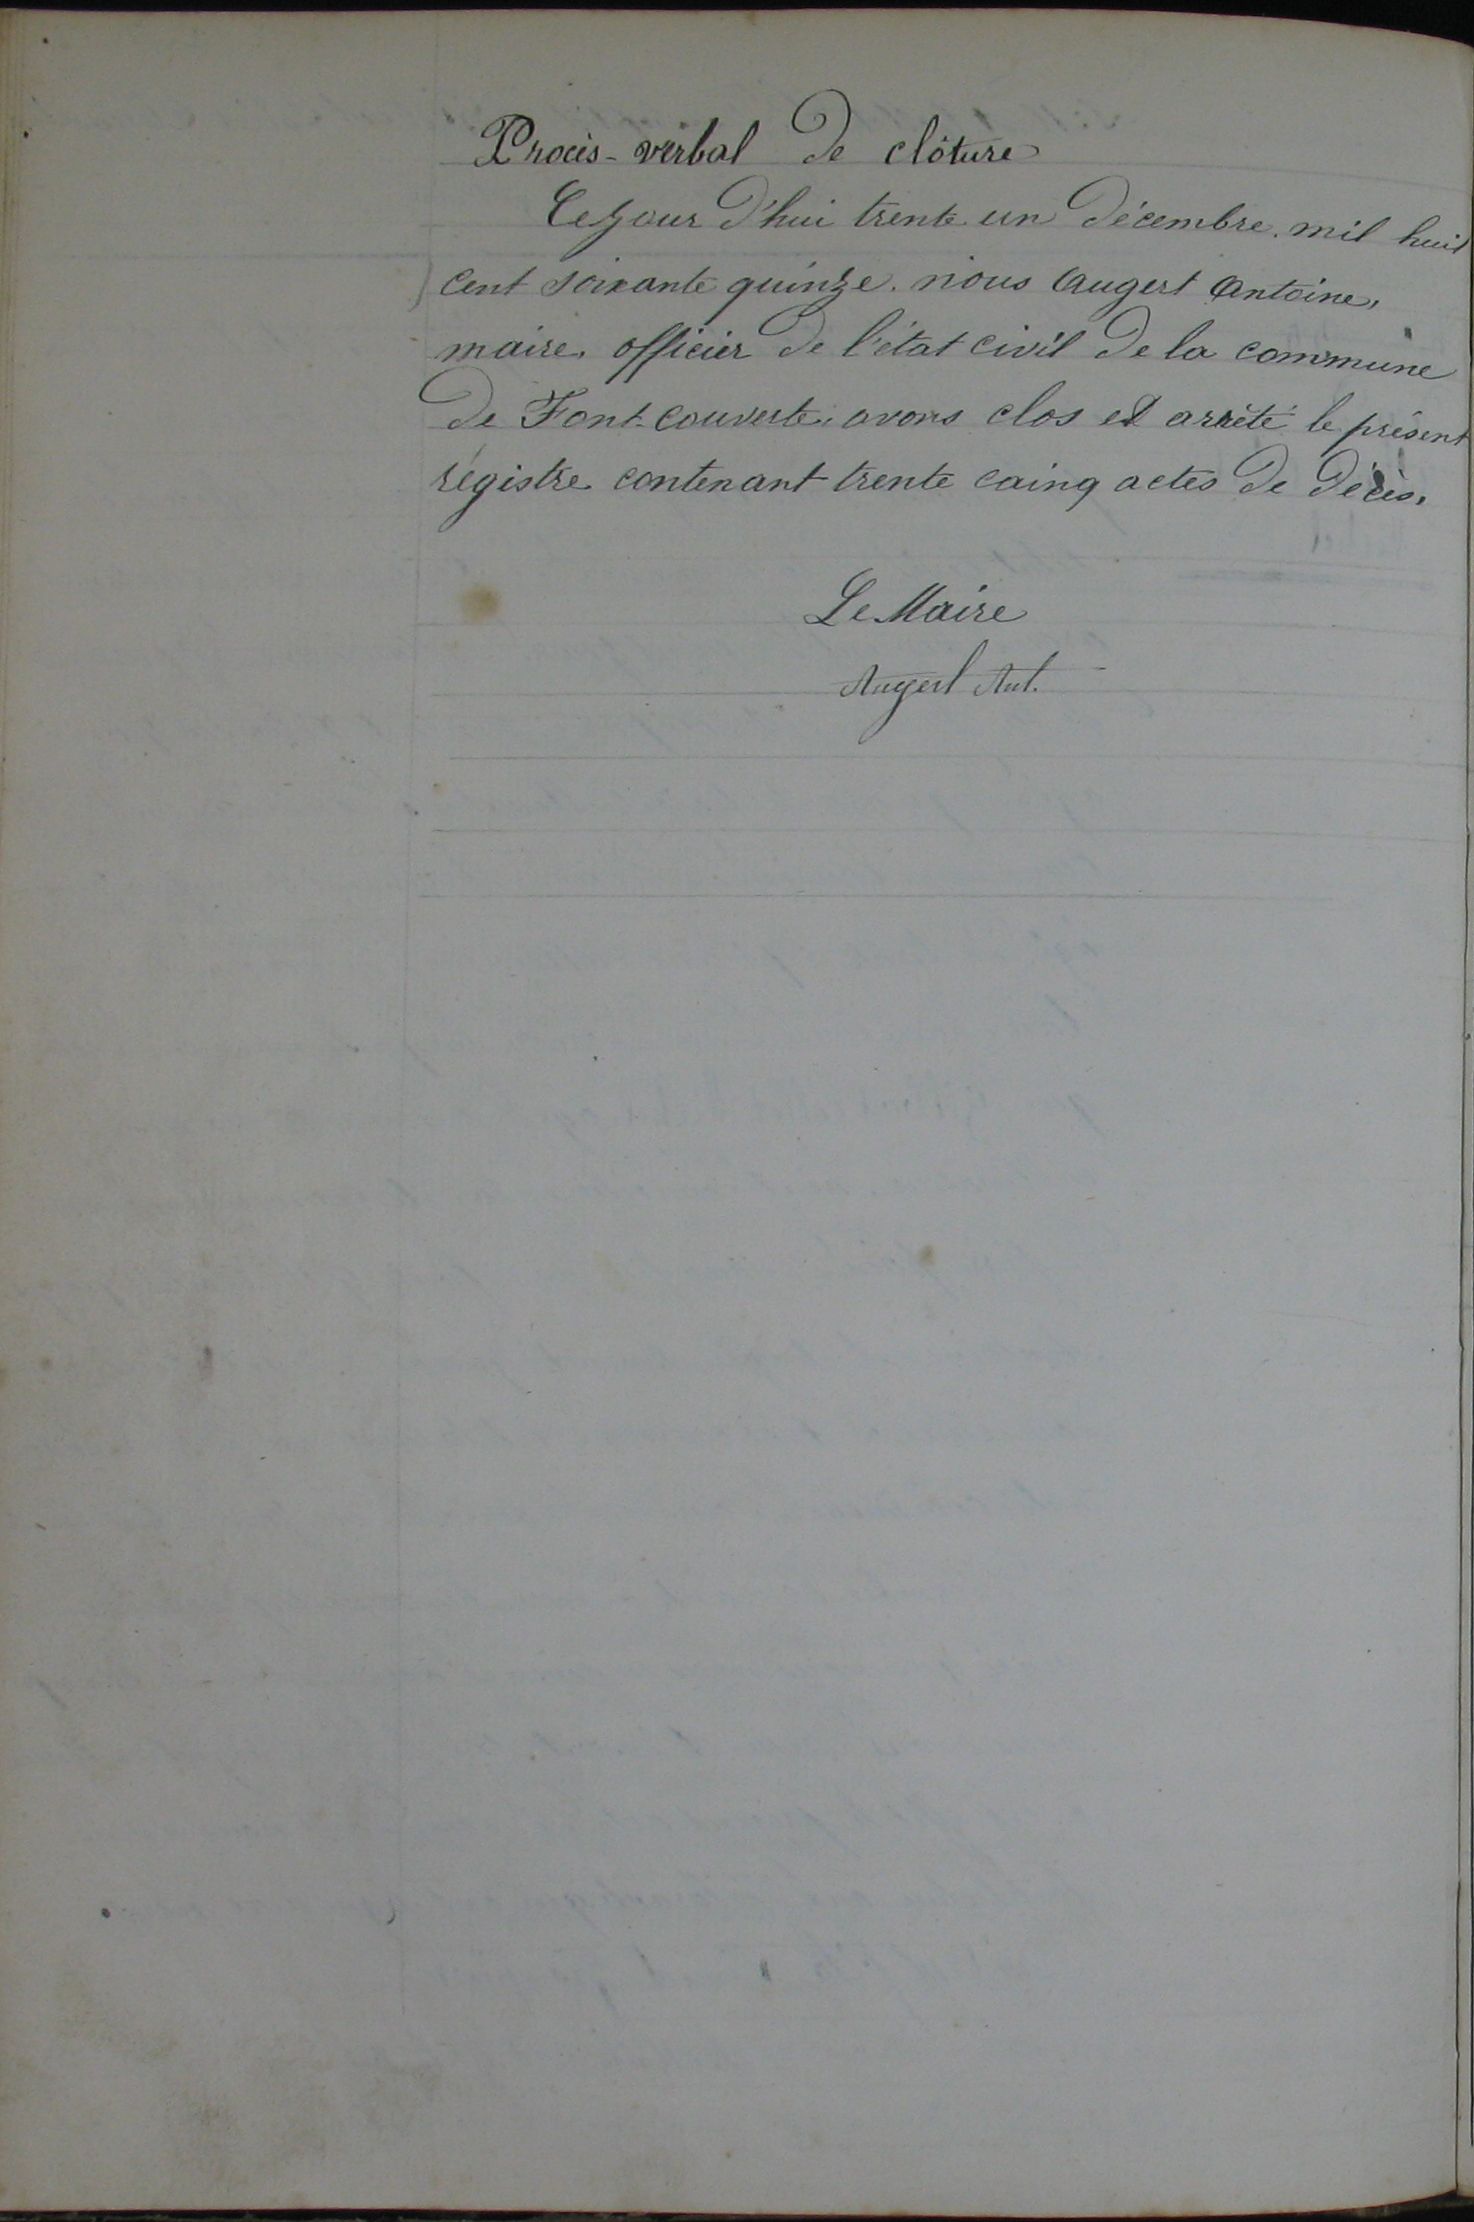 Procès-verbal de clôture
Cejour d'hui trente un décembre. mil huit
cent soixante quinze. nous Augert Antoine,
maire, officier de l'état civil de la commune
de Font-couverte, avons clos et arrêté le présent
régistre contenant trente cainq actes de décès.
Le Maire
Augert Ant.